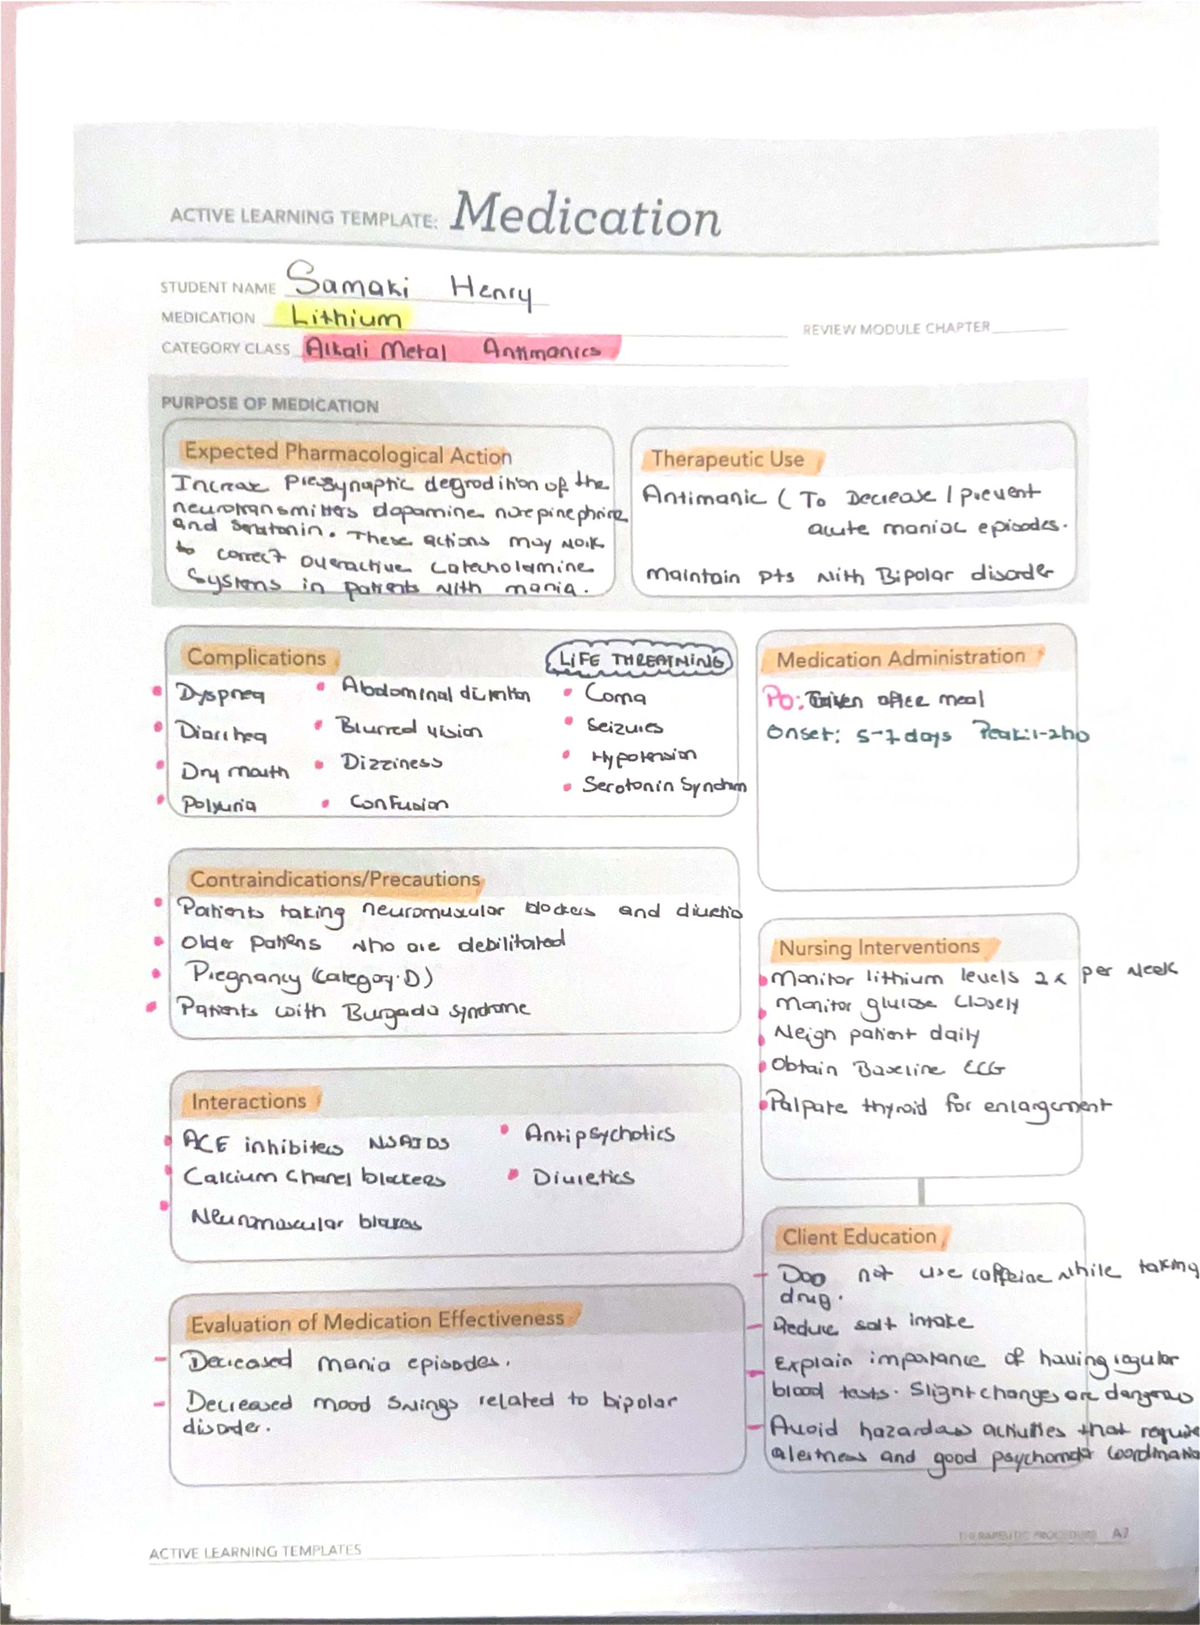 ACTIVE LEARNING TEMPLATE: Medication
STUDENT NAME Samaki Henry
MEDICATION Lithium
REVIEW MODULE CHAPTER
CATEGORY CLASS Alkali Metal Antimanics
PURPOSE OF MEDICATION
Expected Pharmacological Action
Increase Presynaptic degradition of the
neurotransmitters dopamine norepinephrine
and Seratonin. These actions may work
to correct overactive Catecholamine
Systems in patients with mania.
Therapeutic Use
Antimanic ( To Decrease / prevent
acute maniac episodes.
Maintain pts with Bipolar disorder
Complications
LIFE THREATNING
Dyspnea
Diarrhea
Dry mouth
Polyuria
Abdominal distention
Blurred vision
Dizziness
Confusion
Coma
Seizures
Hypotension
Serotonin Syndrom
Medication Administration
PO: Given after meal
Onset: 5-7 days Peak: 1-2ho
Contraindications/Precautions
Patients taking neuromuscular blockers and diuretic
Older patiens who are debilitated
Pregnancy (Category.D)
Patients with Burgada syndrome
Nursing Interventions
Monitor lithium levels 2x per week
Monitor glucose Closely
Weign patient daily
Obtain Baseline ECG
Palpate thyroid for enlargement
Interactions
ACE inhibiters NSAIDS
Calcium Chanel blockers
Neuromuscular
Antipsychotics
Diuretics
Client Education
Doo not use caffeine while taking
drug.
Reduce salt intake
Explain importance of having regular
blood tests. Slight changes are dangerous
Avoid hazardous activities that require
alertness and good psychomotor Coordination
Evaluation of Medication Effectiveness
Decreased mania episodes.
Decreased mood swings related to bipolar
disorder.
THERAPEUTIC PROCEDURE A7
ACTIVE LEARNING TEMPLATES